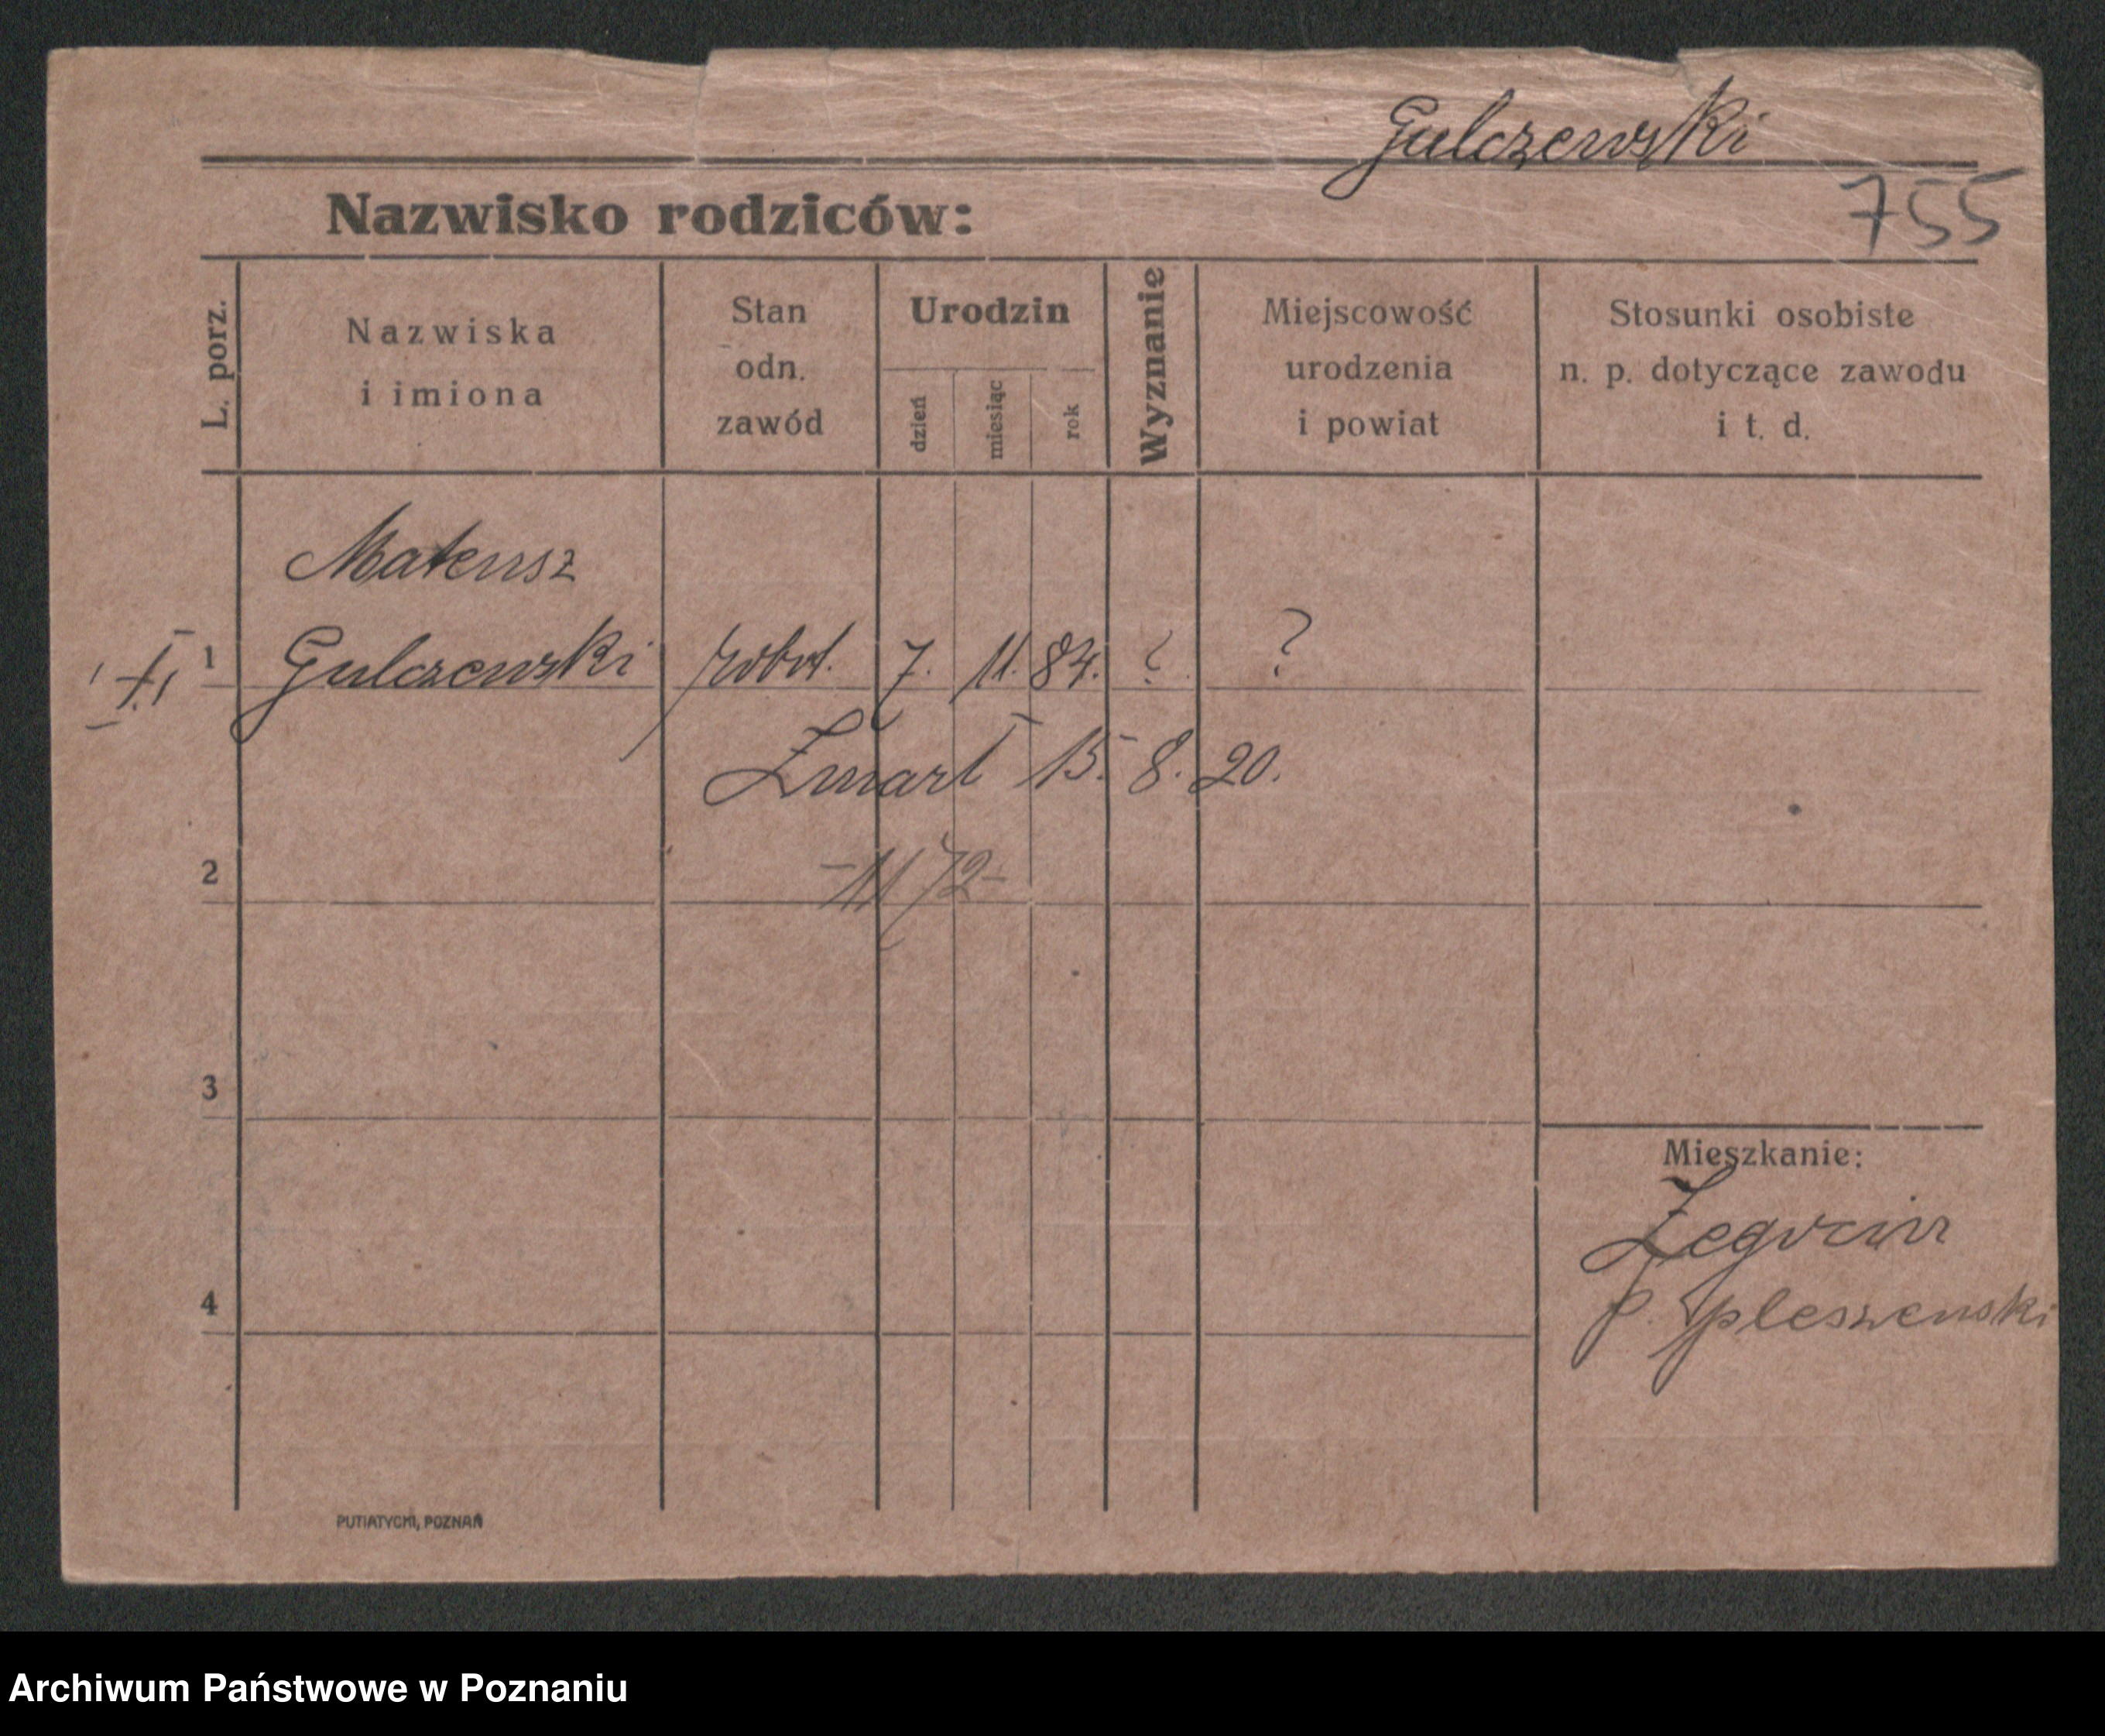 Gulczewski
755
Nazwisko rodziców:
L. porz.
Nazwiska
i imiona
Stan
odn.
zawód
Urodzin
dzień
miesiąc
rok
Wyznanie
Miejscowość
urodzenia
i powiat
Stosunki osobiste
n. p. dotyczące zawodu
i t. d.
Mateusz
1 Gulczewski robot. 7. 11. 84. ? ?
Zmarł 15. 8. 20.
2
3
4
Mieszkanie:
p. pleszewski
PUTIATYCKI, POZNAŃ
Archiwum Państwowe w Poznaniu